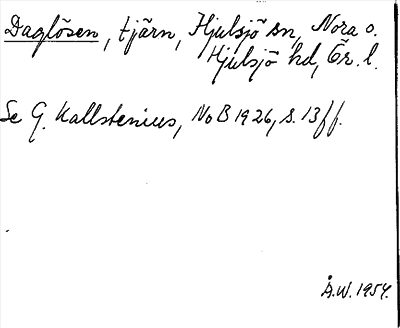 Daglösen, tjärn, Hjulsjö sn, Nora o.
Hjulsjö hd, Ör. l.
Se G. Kallstenius, NoB 1926, s. 13ff.
Å.W. 1954.